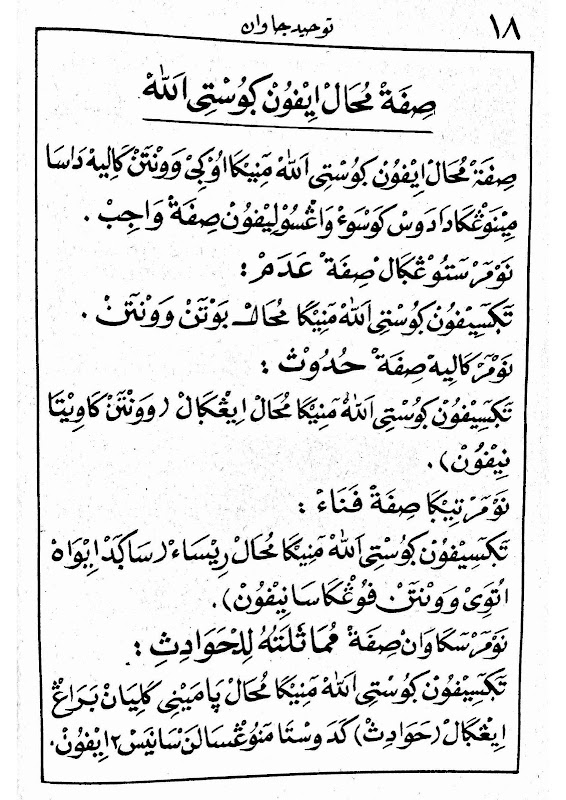 ١٨
توحيد جاوان
صِفَةْ مُحَالْ اِيْفُوْنْ ڮُوْسْتِى اَللّٰهْ
صِفَةْ مُحَالْ اِيْفُوْنْ ڮُوْسْتِى اَللّٰهْ مَنِيْكَا اُوْڮِيْ وَوْنْتَنْ كَالِيهْ دَاسَا
مِيْنَوْڠْكَا دَادَوْسْ كَوْسَوءْ وَاڠْسُوْلِيْفُوْنْ صِفَةْ وَاجِبْ .
نَوْمَرْ سَتُوْڠْڮَالْ صِفَةْ عَدَمْ :
تَڮْسِيْفُوْنْ ڮُوْسْتِى اَللّٰهْ مَنِيْكَا مُحَالْ بَوْتَنْ وَوْنْتَنْ .
نَوْمَرْ كَالِيهْ صِفَةْ حُدُوْثْ :
تَڮْسِيْفُوْنْ ڮُوْسْتِى اَللّٰهْ مَنِيْكَا مُحَالْ اِيْڠْڮَالْ (وَوْنْتَنْ كَاوِيْتَا
نِيْفُوْنْ) .
نَوْمَرْ تِيْڮَا صِفَةْ فَنَاءْ :
تَڮْسِيْفُوْنْ ڮُوْسْتِى اَللّٰهْ مَنِيْكَا مُحَالْ رِيْسَاءْ (سَاڮَدْ اِيْوَاهْ
اُتَوِيْ وَوْنْتَنْ فُوْڠْكَاسَانِيْفُوْنْ) .
نَوْمَرْ سَكَاوَانْ صِفَةْ مُمَاثَلَتُهُ لِلْحَوَادِثِ :
تَڮْسِيْفُوْنْ ڮُوْسْتِى اَللّٰهْ مَنِيْكَا مُحَالْ پَامَيْنِيْ كَلِيَانْ بَرَاڠْ
اِيْڠْڮَالْ (حَوَادِثْ) كَدَوسْتَا مَنُوْڠْسَا لَنْ سَانَيْسْ٢ اِيْفُوْنْ .